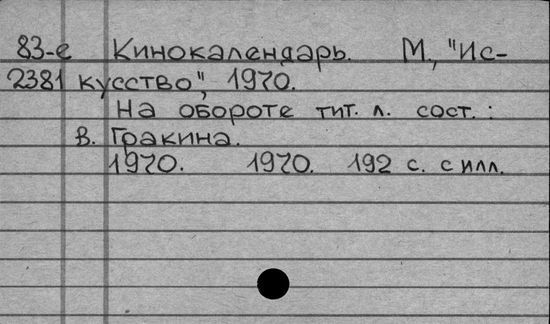 83-е Кинокалендарь. М., "Ис-
2381 кусство", 1970.
На обороте тит. л. сост.:
В. Гракина.
1970. 1970. 192 с. с илл.